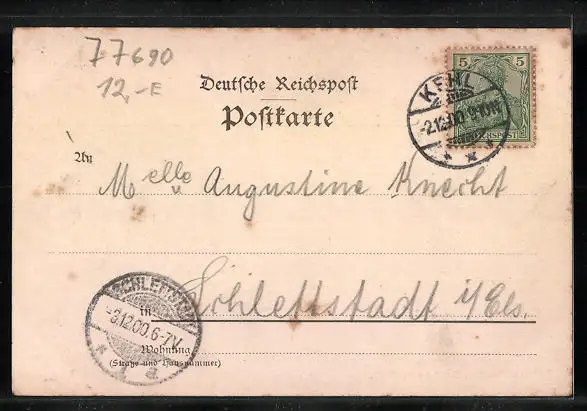 77690
12,-E
Deutsche Reichspost
Postkarte
5 5
REICHSPOST
KEHL
-2.12.00. 9-10N
An
Melle Augustine Knecht
Schlettstadt i/Els.
SCHLETTSTADT
-3.12.00. 6-7V.
in
Wohnung
(Straße und Hausnummer)